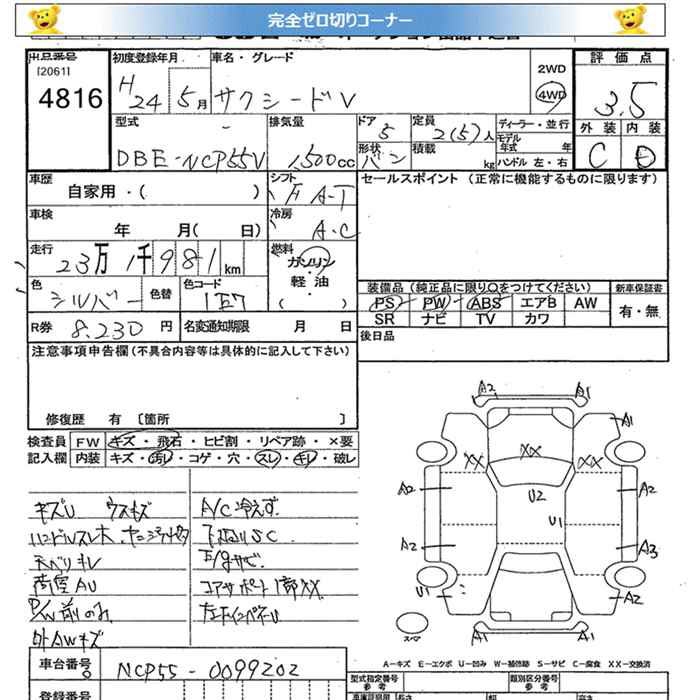 完全ゼロ切りコーナー
出品番号
[2061]
4816
初度登録年月
H24 5月
車名・グレード
サクシードV
2WD
4WD
評価点
3.5
外装 内装
C D
型式
DBE-NCP55V
排気量
1,500cc
ドア
5
形状
バン
定員
2(5)人
積載
kg
ディーラー・並行
モデル年式 年
ハンドル 左・右
車歴
自家用・( )
シフト
F A-T
セールスポイント (正常に機能するものに限ります)
車検
年 月( 日)
冷房
A・C
走行
23万1千981km
燃料
ガソリン
軽油
( )
色
シルバー
色替
色コード
1E7
装備品(純正品に限り○をつけてください)
PS PW ABS エアB AW
SR ナビ TV カワ
新車保証書
有・無
R券 8,230円
名変通知期限 月 日
後日品
注意事項申告欄(不具合内容等は具体的に記入して下さい)
修復歴 有 [箇所 ]
検査員記入欄
FW キズ・飛石・ヒビ割・リペア跡・×要
内装 キズ・汚れ・コゲ・穴・スレ・キレ・破レ
キズU ウスキズ
天ベリキレ
荷室AU
P/W前のみ
外AWキズ
A/C冷えず
下廻りSC
コアサポート1部XX
A2 A1
A1
XX XX XX
A2 U2 A2
U1
A2 A3
U1 A2
スペア
A1 A1
A-キズ E-エクボ U-凹み W-補修跡 S-サビ C-腐食 XX-交換済
車台番号
NCP55-0099202
登録番号
型式指定番号
参考
類別区分番号
参考
長さ
幅
高さ